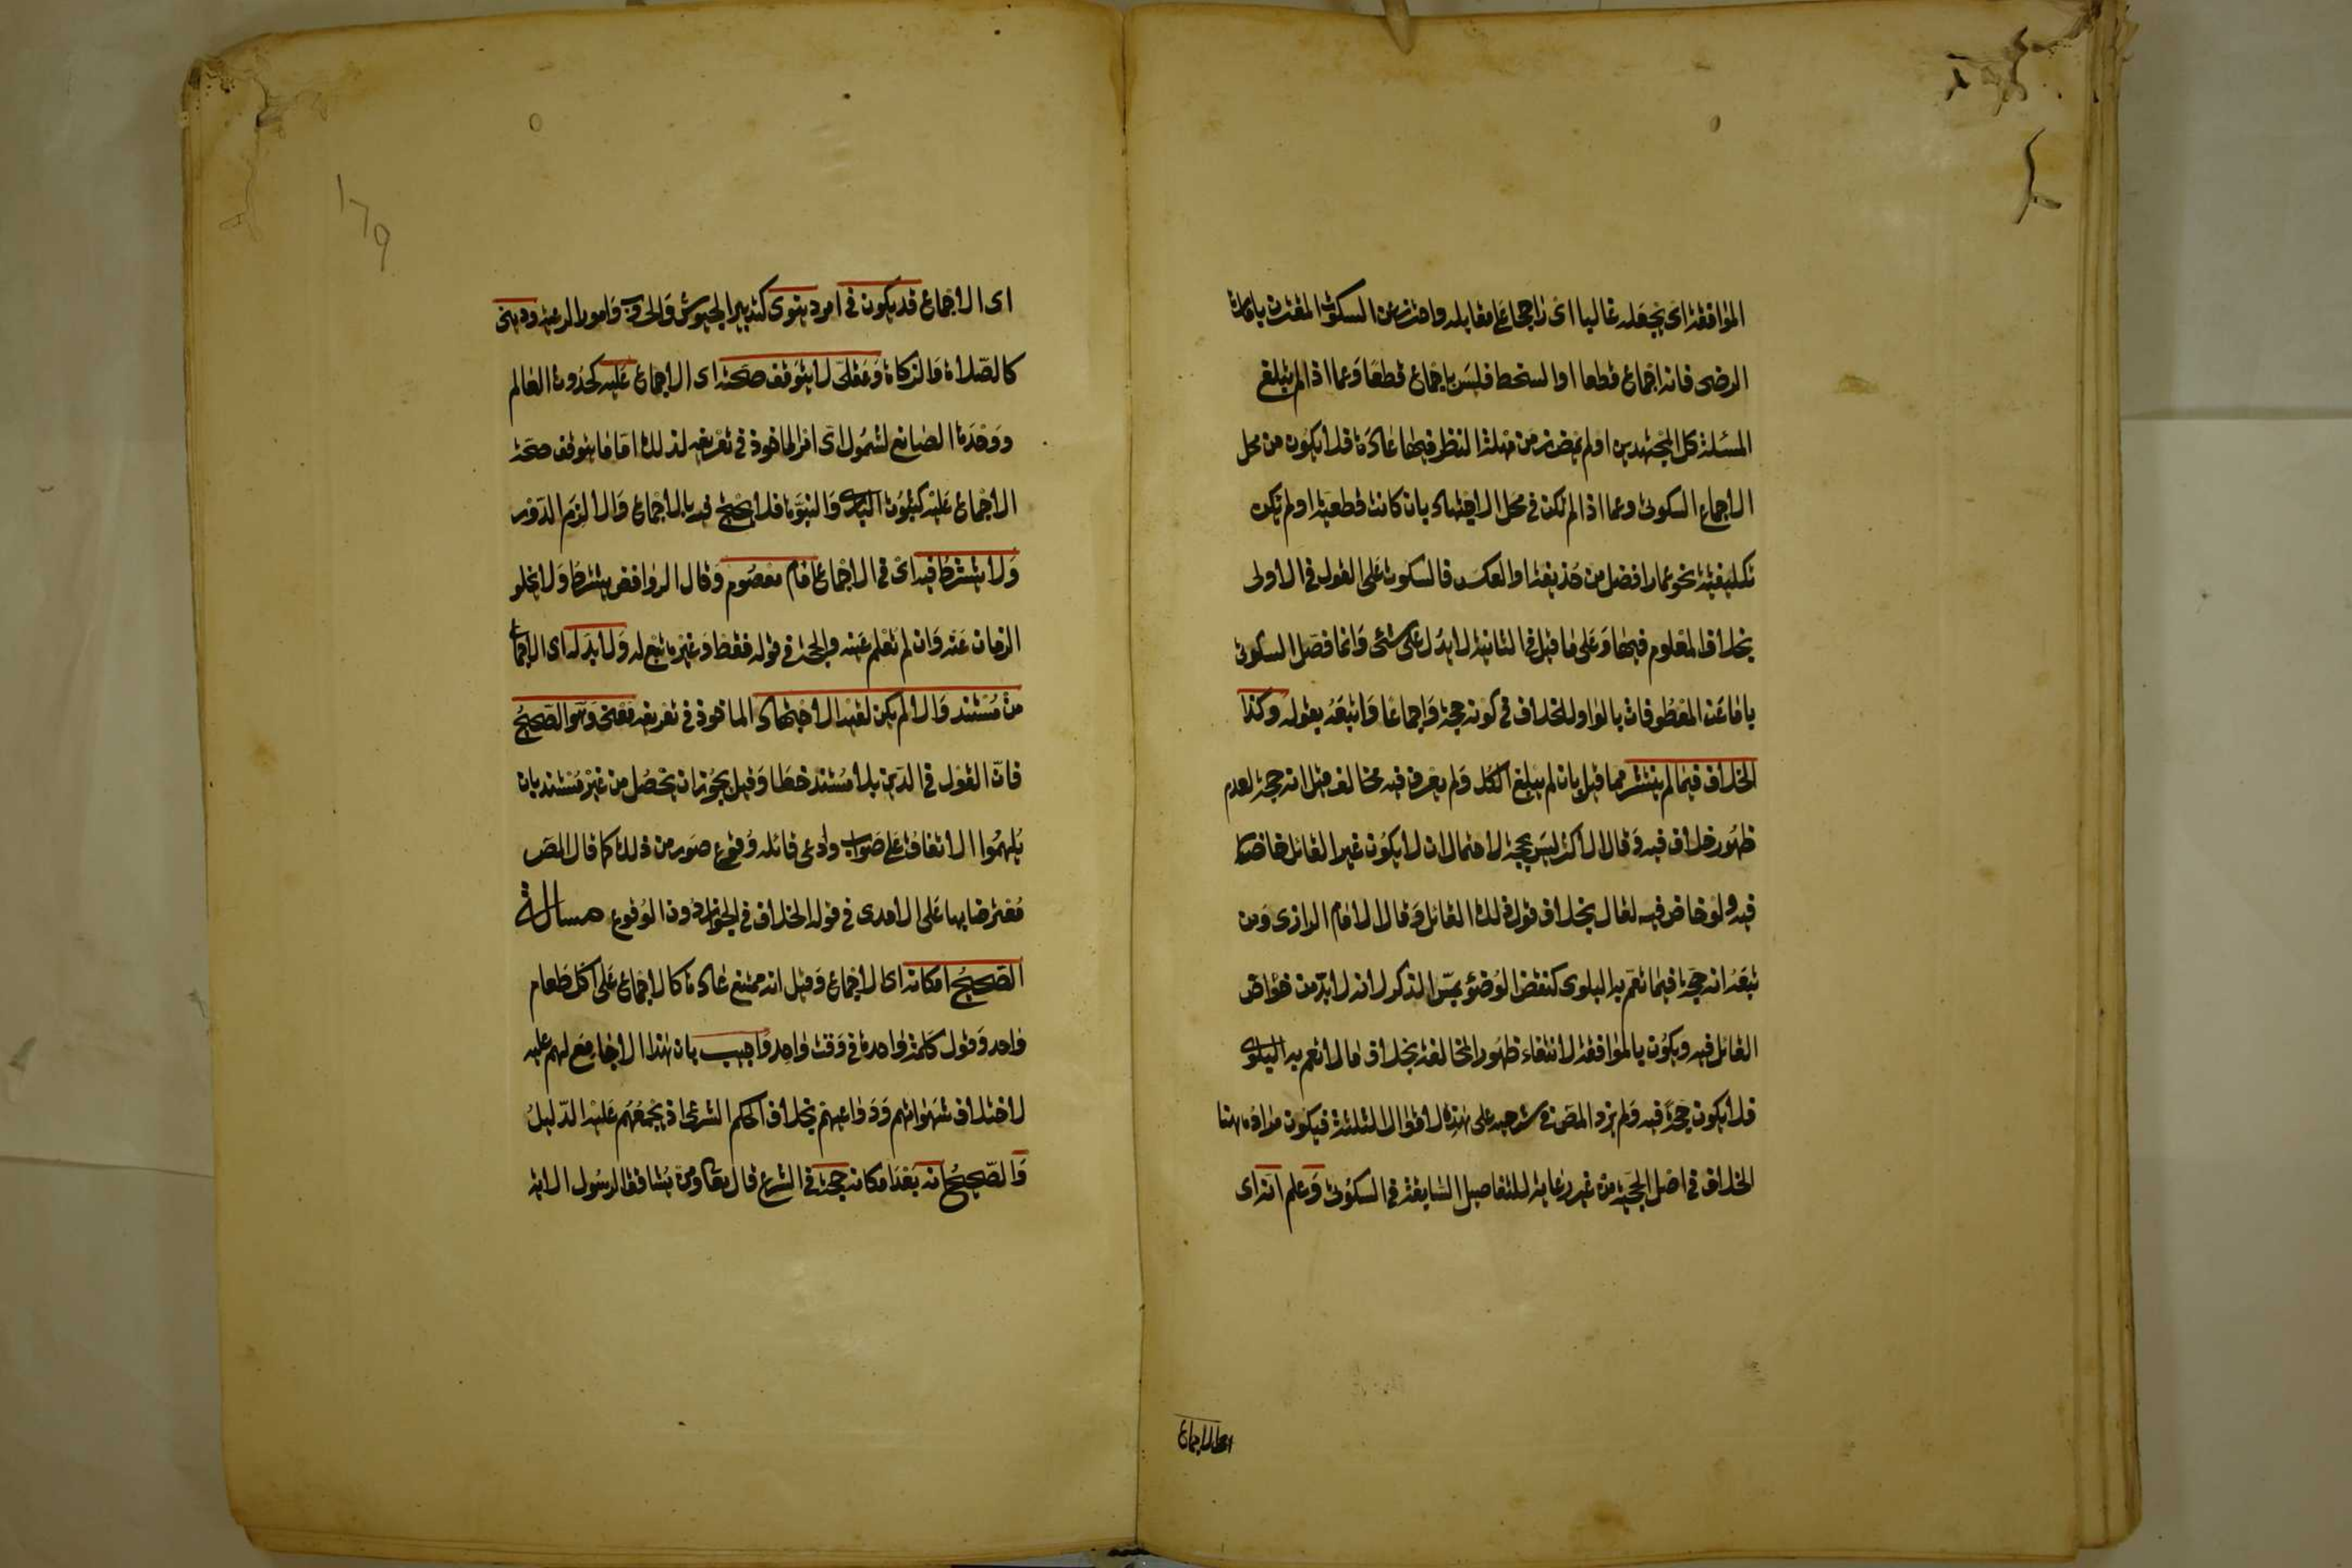 الموافقة اى يجعله غالبا اى راجحا على مقابله واحترز عن السكوت المقترن بامارة
الرضى فانه اجماع قطعا او السخط فليس باجماع قطعا وعما اذا لم يبلغ
المسئلة كل المجتهدين او لم يمض زمن مهلة النظر فيها عادة فلا يكون من محل
الاجماع السكوتى وعما اذا لم تكن فى محل الاجتهاد بان كانت قطعية او لم تكن
تكليفية نحو عمار افضل من حذيفة او العكس فالسكوت على القول فى الاولى
بخلاف المعلوم فيها وعلى ما قيل فى الثانية لا يدل على شئ وانما فصل السكوتى
باما عن المعطوفات بالواو للخلاف فى كونه حجة واجماعا واتبعه بقوله وكذا
الخلاف فيما لم ينتشر مما قيل بان لم يبلغ الكل ولم يعرف فيه مخالف قيل انه حجة لعدم
ظهور خلاف فيه وقال الاكثر ليس بحجة لاحتمال ان لا يكون غير القائل خاض
فيه ولو خاض فيه لقال بخلاف قول ذلك القائل وقال الامام الرازى ومن
تبعه انه حجة فيما تعم به البلوى كنقض الوضوء بمس الذكر لانه لا بد من خواض
القائل فيه ويكون بالموافقة لانتفاء ظهور المخالفة بخلاف ما لا تعم به البلوى
فلا يكون حجة فيه ولم يزد المص فى شرحيه على هذه الاقوال الثلثة فيكون مراده هنا
الخلاف فى اصل الحجية من غير رعاية للتفاصيل السابقة فى السكوتى وعلم انه اى
اى الاجماع
اى الاجماع قد يكون فى امر دينوى كتدبير الجيوش والحروب وامور الرعية ودينى
كالصلاة والزكاة وعقلى لا يتوقف صحته اى الاجماع عليه كحدوث العالم
ووحدة الصانع لشمول اى امر الماخوذ فى تعريفه لذلك اما ما يتوقف صحة
الاجماع عليه كثبوت البارى والنبوة فلا يحتج فيه بالاجماع والا لزم الدور
ولا يشترط فيه اى فى الاجماع امام معصوم وقال الروافض يشترط ولا يخلو
الزمان عنه وان لم تعلم عينه والحجة فى قوله فقط وغيره تبع له ولا بد له اى الاجماع
من مستند والا لم يكن لقيد الاجتهاد الماخوذ فى تعريفه معنى وهو الصحيح
فان القول فى الدين بلا مستند خطا وقيل يجوز ان يحصل من غير مستند بان
يلهموا الاتفاق على صواب وادعى قائله وقوع صور من ذلك كما قال المص
معترضا بها على الامدى فى قوله الخلاف فى الجواز دون الوقوع مسالة
الصحيح امكانه اى الاجماع وقيل انه ممتنع عادة كالاجماع على اكل طعام
واحد وقول كلمة واحدة فى وقت واحد واجيب بان هذا لا جامع لهم عليه
لاختلاف شهواتهم ودواعيهم بخلاف الحكم الشرعى اذ يجمعهم عليه الدليل
والصحيح انه بعد امكانه حجة فى الشرع قال تعالى ومن يشاقق الرسول الاية
١٧٩